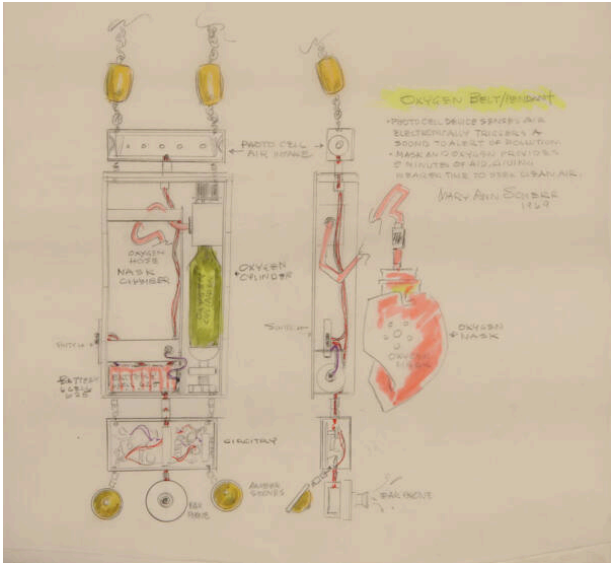 OXYGEN BELT/PENDANT
• PHOTO CELL DEVICE SENSES AIR
ELECTRONICALLY TRIGGERS A
SOUND TO ALERT OF POLLUTION
• MASK AND OXYGEN PROVIDES
5 MINUTES OF AID, GIVING
WEARER TIME TO SEEK CLEAN AIR.
MARY ANN SCHERR
1969
PHOTO CELL
AIR INTAKE
OXYGEN
HOSE
MASK
CHAMBER
OXYGEN
CYLINDER
OXYGEN
CYLINDER
SWITCH
SWITCH
OXYGEN
MASK
OXYGEN
MASK
BATTERY
CIRCITRY
AMBER
STONES
EAR
PHONE
EARPHONE